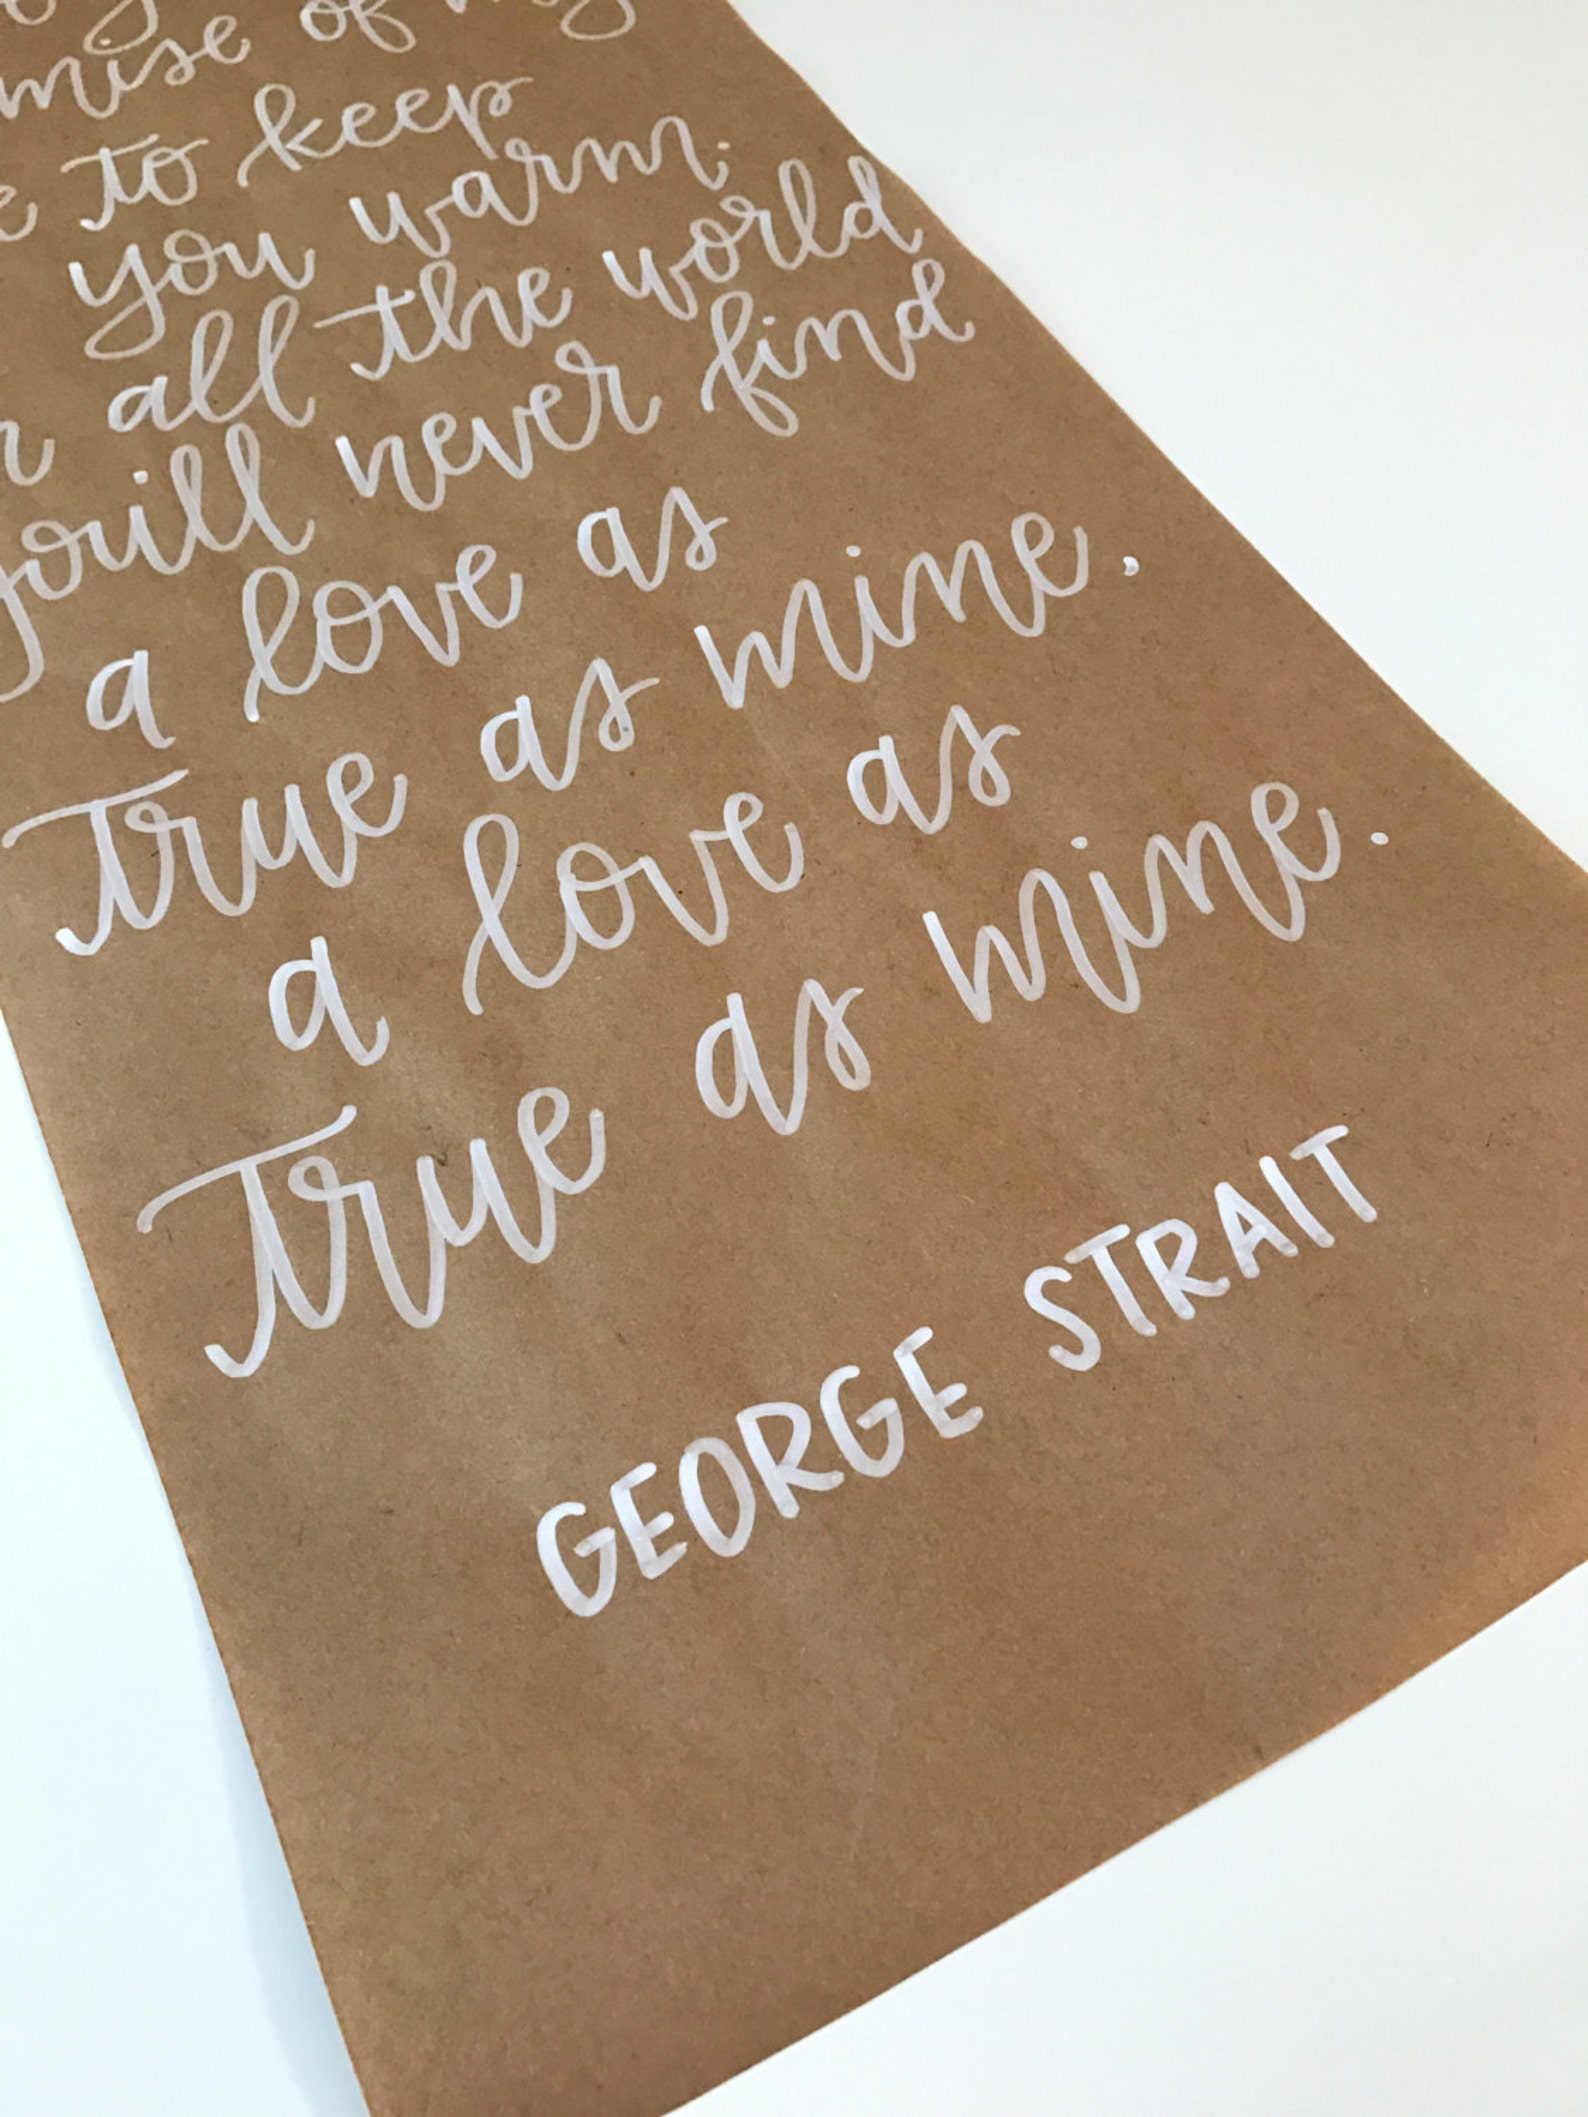 of my
to keep
you warm.
all the world
you'll never find
a love as
true as mine.
a love as
true as mine.
GEORGE STRAIT